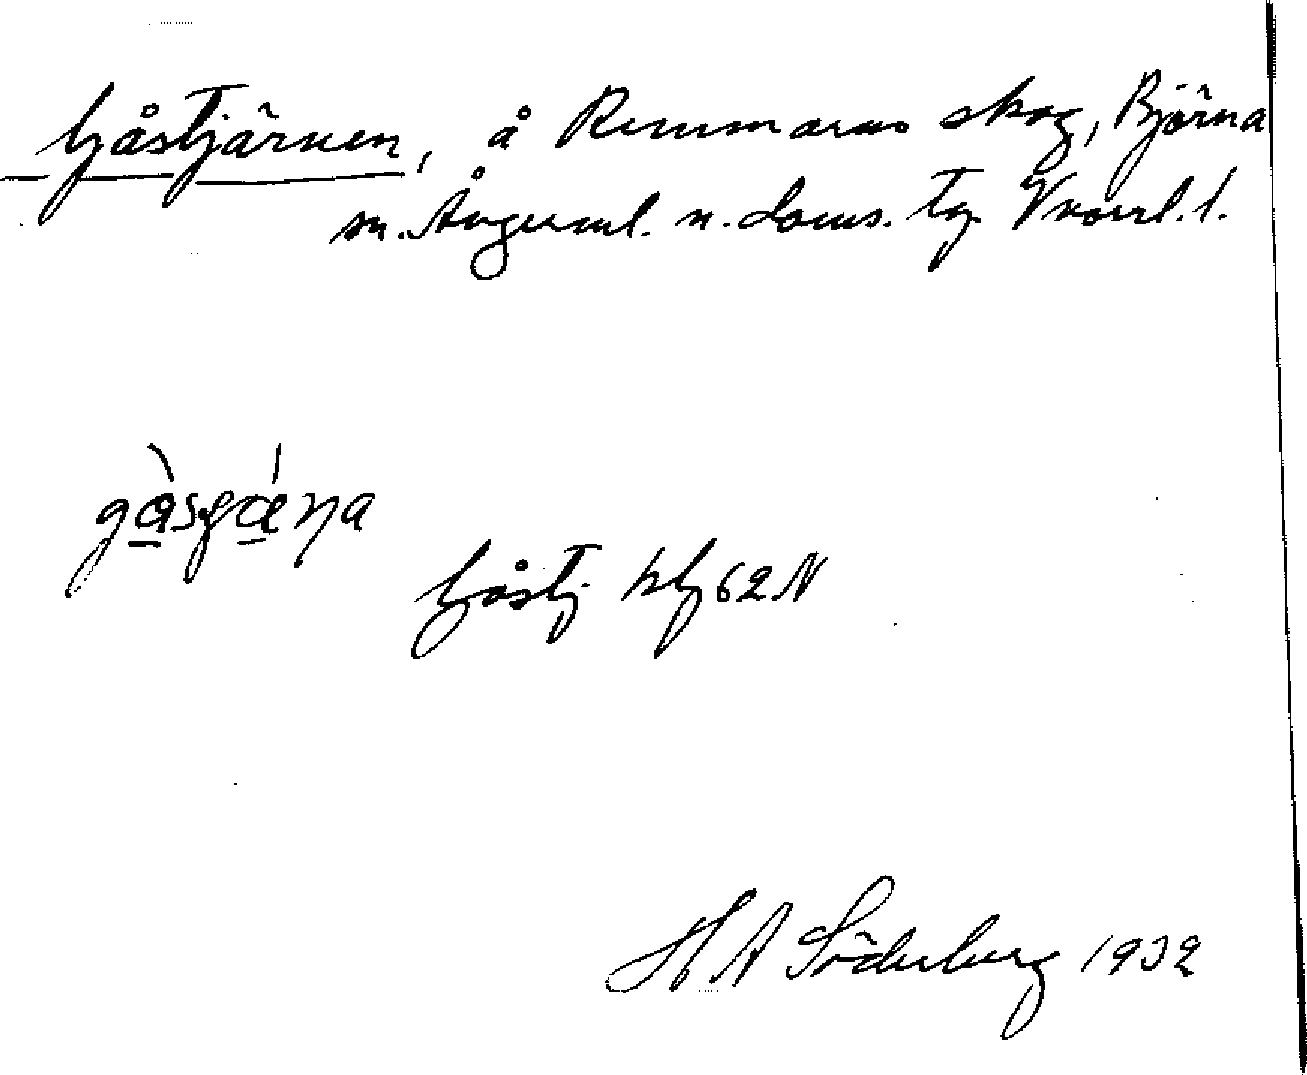 Gåstjärnen, å Remmarns skog, Björna
sn. Ångerml. n. doms. tg. Vnorrl. l.
gåsʃæ̀ɳa
Gåstj kbl 62 N
H A Söderberg 1932